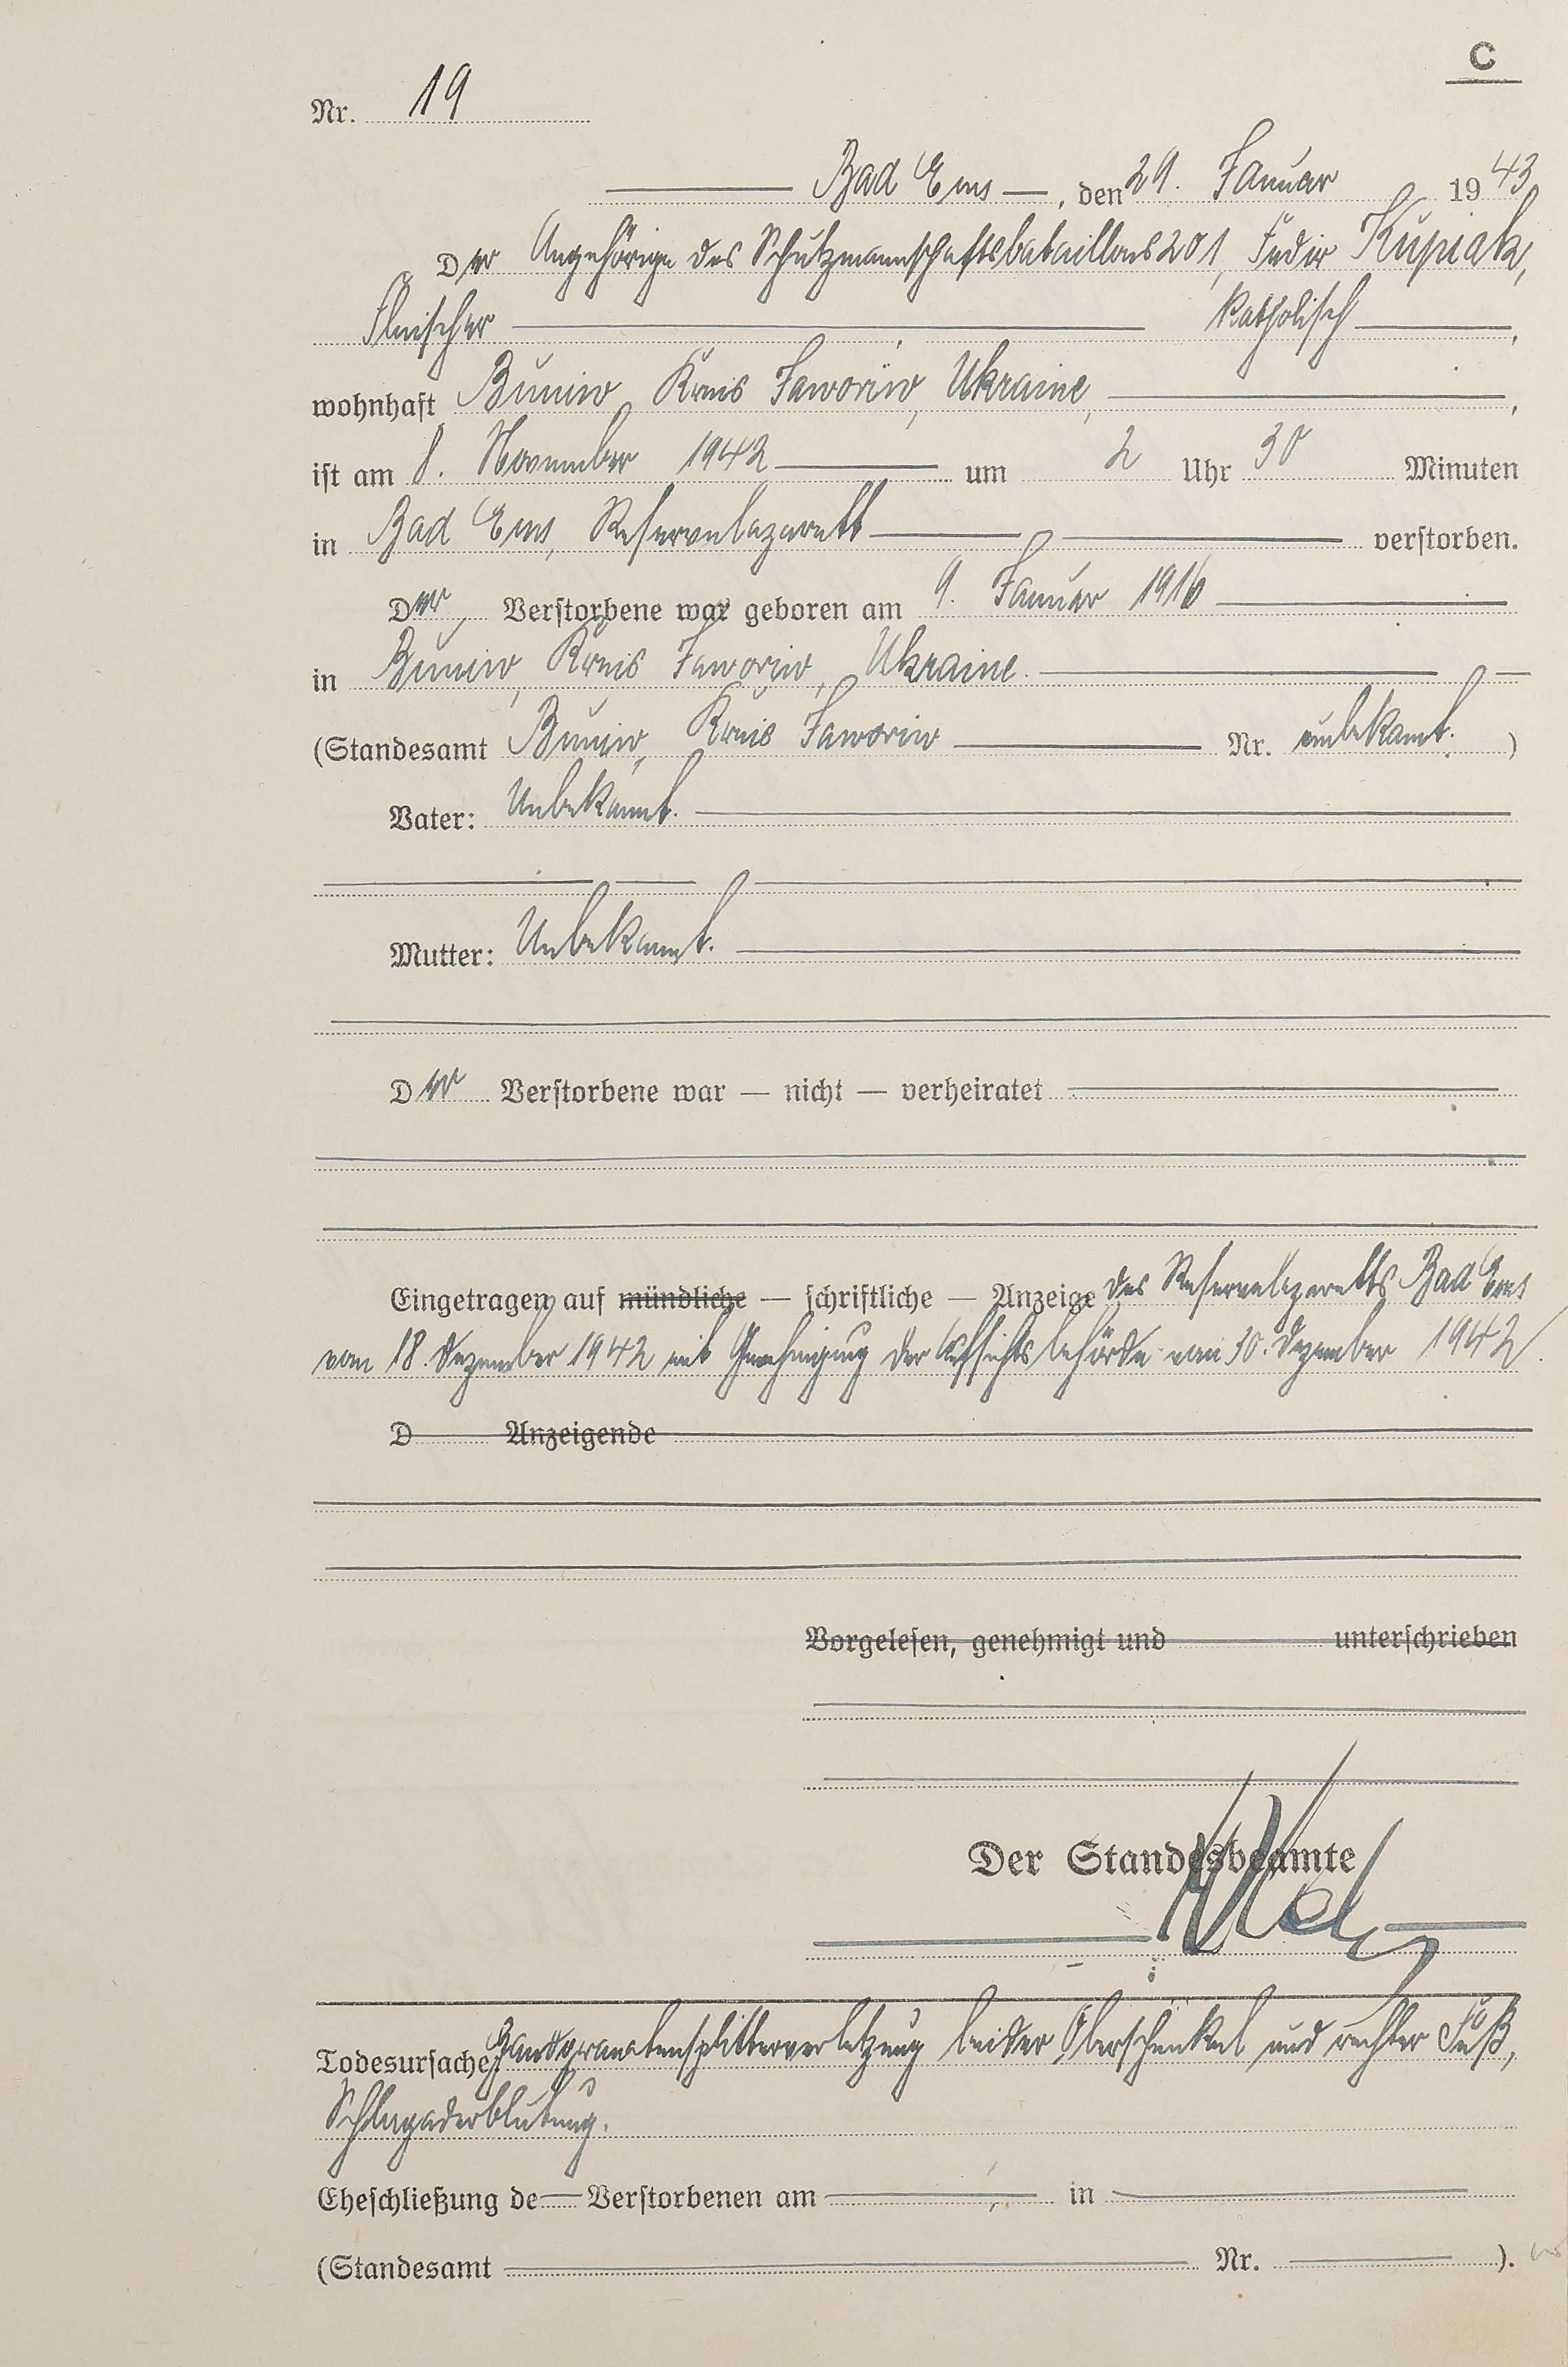 C
Nr. 19
Bad Ems, den 29. Januar 1943
Der Angehörige des Schutzmannschaftsbataillons 201, Fedir Kupiak,
Fleischer katholisch,
wohnhaft Buniw, Kreis Jaworiw, Ukraine,
ist am 8. November 1942 um 2 Uhr 30 Minuten
in Bad Ems, Reservelazarett verstorben.
Der Verstorbene war geboren am 9. Januar 1916
in Buniw, Kreis Jaworiw, Ukraine.
(Standesamt Buniw, Kreis Jaworiw Nr. unbekannt.)
Vater: Unbekannt.
Mutter: Unbekannt.
Der Verstorbene war — nicht — verheiratet
Eingetragen auf mündliche — schriftliche — Anzeige des Reservelazaretts Bad Ems
vom 18. Dezember 1942 mit Genehmigung der Aufsichtsbehörde vom 30. Dezember 1942.
D Anzeigende
Vorgelesen, genehmigt und unterschrieben
Der Standesbeamte
Todesursache: Handgranatensplitterverletzung beider Oberschenkel und rechter Fuß,
Schlagaderblutung.
Eheschließung de Verstorbenen am in
(Standesamt Nr. ).